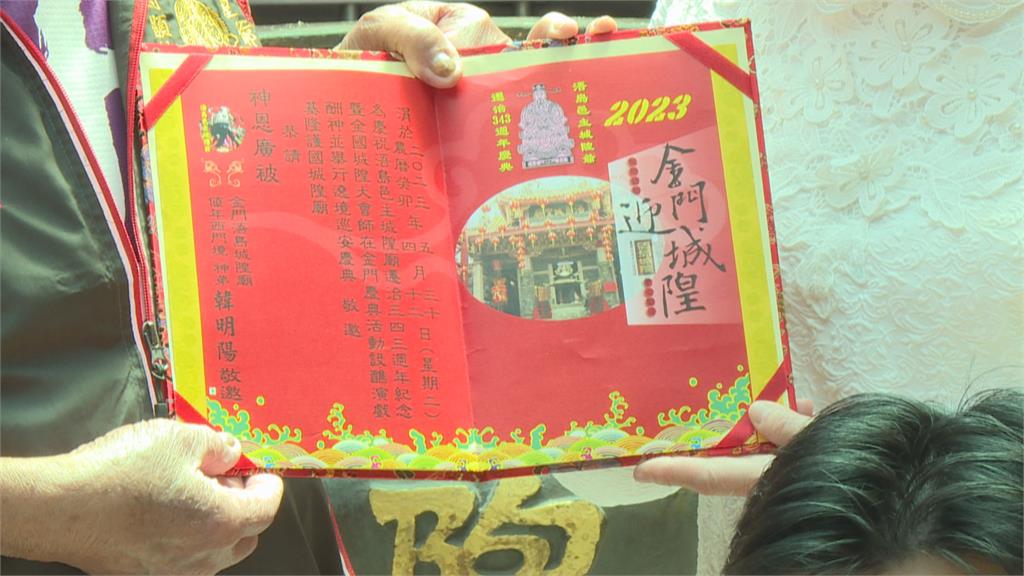 2023
浯島邑主城隍爺
遷治343週年慶典
金門
迎城隍
謹於二〇二三年五月三十日(星期二)
農曆癸卯年四月十二
為慶祝浯島邑主城隍廟遷治三四三週年紀念
暨全國城隍大會師在金門慶典活動設醮演戲
酬神並舉行遶境巡安慶典 敬邀
基隆護國城隍廟
恭請
神恩廣被
金門浯島城隍廟
值年西門境 神弟 韓明陽 敬邀